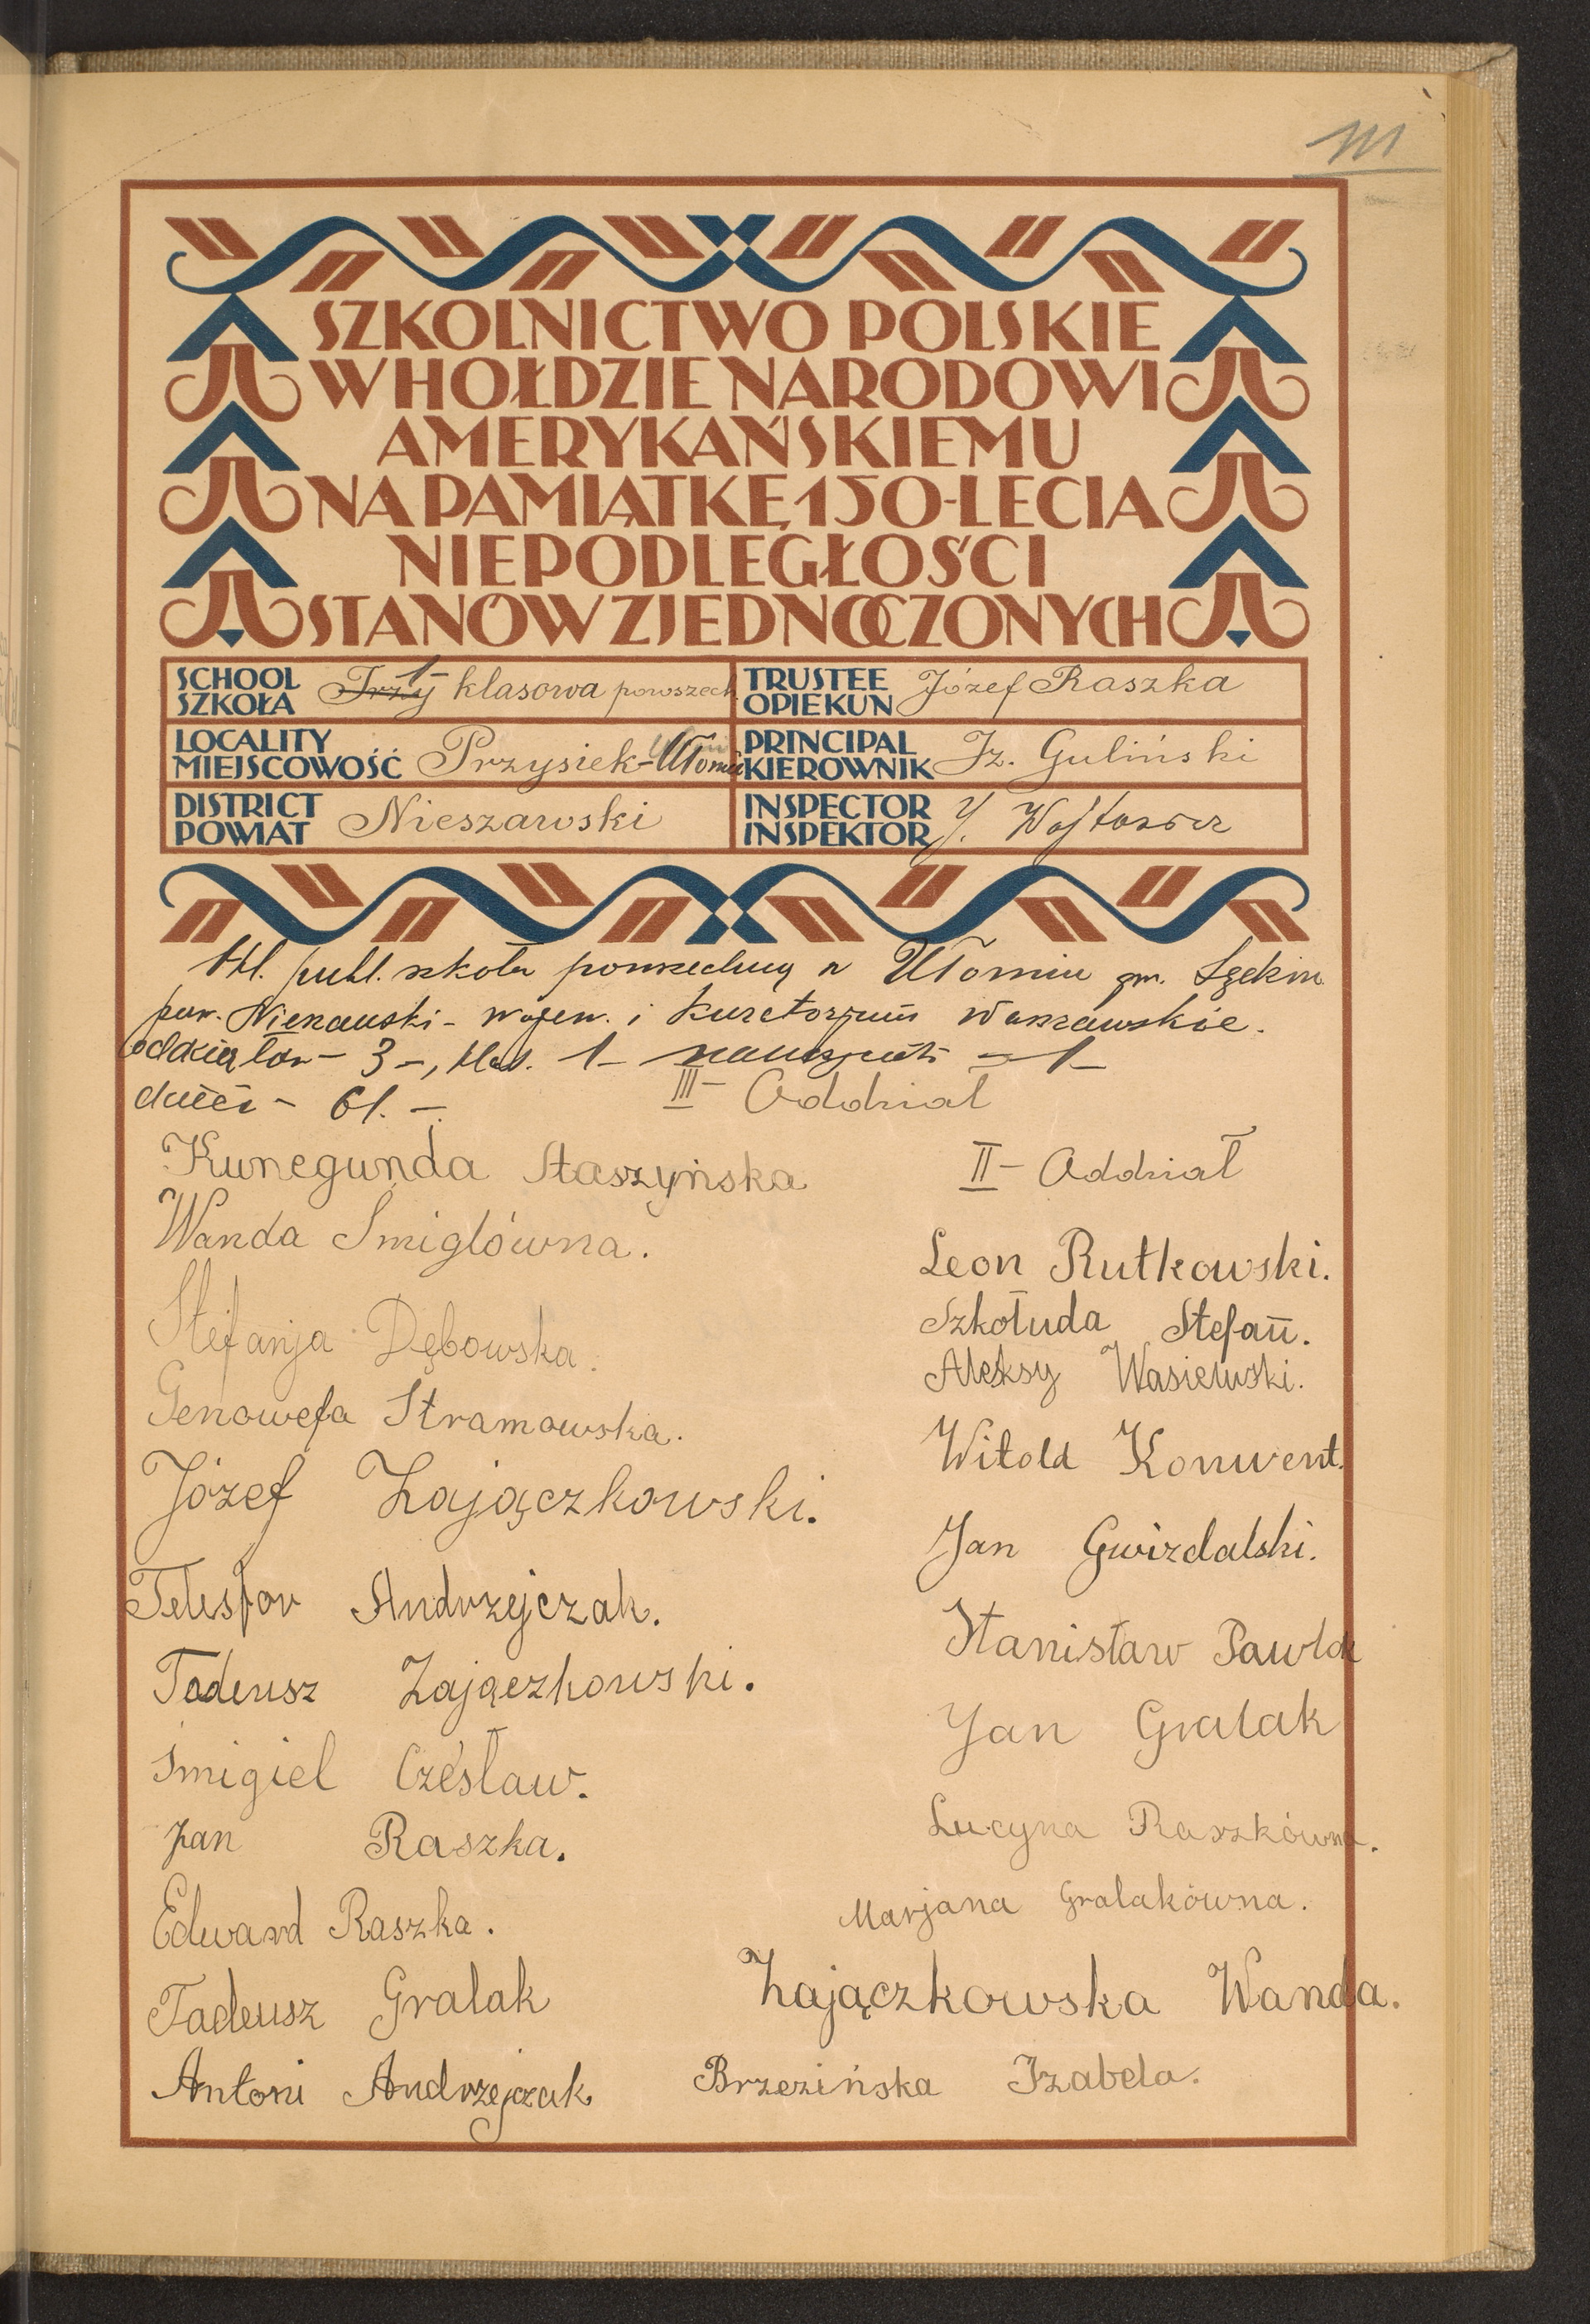 111
SZKOLNICTWO POLSKIE
W HOŁDZIE NARODOWI
AMERYKAŃSKIEMU
NA PAMIĄTKĘ 150-LECIA
NIEPODLEGŁOŚCI
STANÓW ZJEDNOCZONYCH
SCHOOL
SZKOŁA
Trzy 1 klasowa powszech.
TRUSTEE
OPIEKUN
Józef Raszka
LOCALITY
MIEJSCOWOŚĆ
Przysiek-Utomie
PRINCIPAL
KIEROWNIK
Iz. Guliński
DISTRICT
POWIAT
Nieszawski
INSPECTOR
INSPEKTOR
publ. szkoła w Utomiu gm.
pow. Nieszawski - wojew. i Kuratorjum Warszawskie.
oddziałów - 3 -, klas. 1 - - 1 -
dzieci - 61. -
III - Oddział
Kunegunda Staszyńska
Wanda Śmiglówna.
Stefanja Dębowska.
Genowefa Stramowska.
Józef Zajączkowski.
Telesfor Andrzejczak.
Tadeusz Zajączkowski.
Śmigiel Czesław.
Jan Raszka.
Edward Raszka.
Tadeusz Gralak
Antoni Andrzejczak
II - Oddział
Leon Rutkowski.
Szkołuda Stefan.
Aleksy Wasiewski.
Witold Konwent.
Jan Gwizdalski.
Stanisław Pawlak
Jan Gralak
Lucyna Raszkówna.
Marjana Gralakówna.
Zajączkowska Wanda.
Brzezińska Izabela.